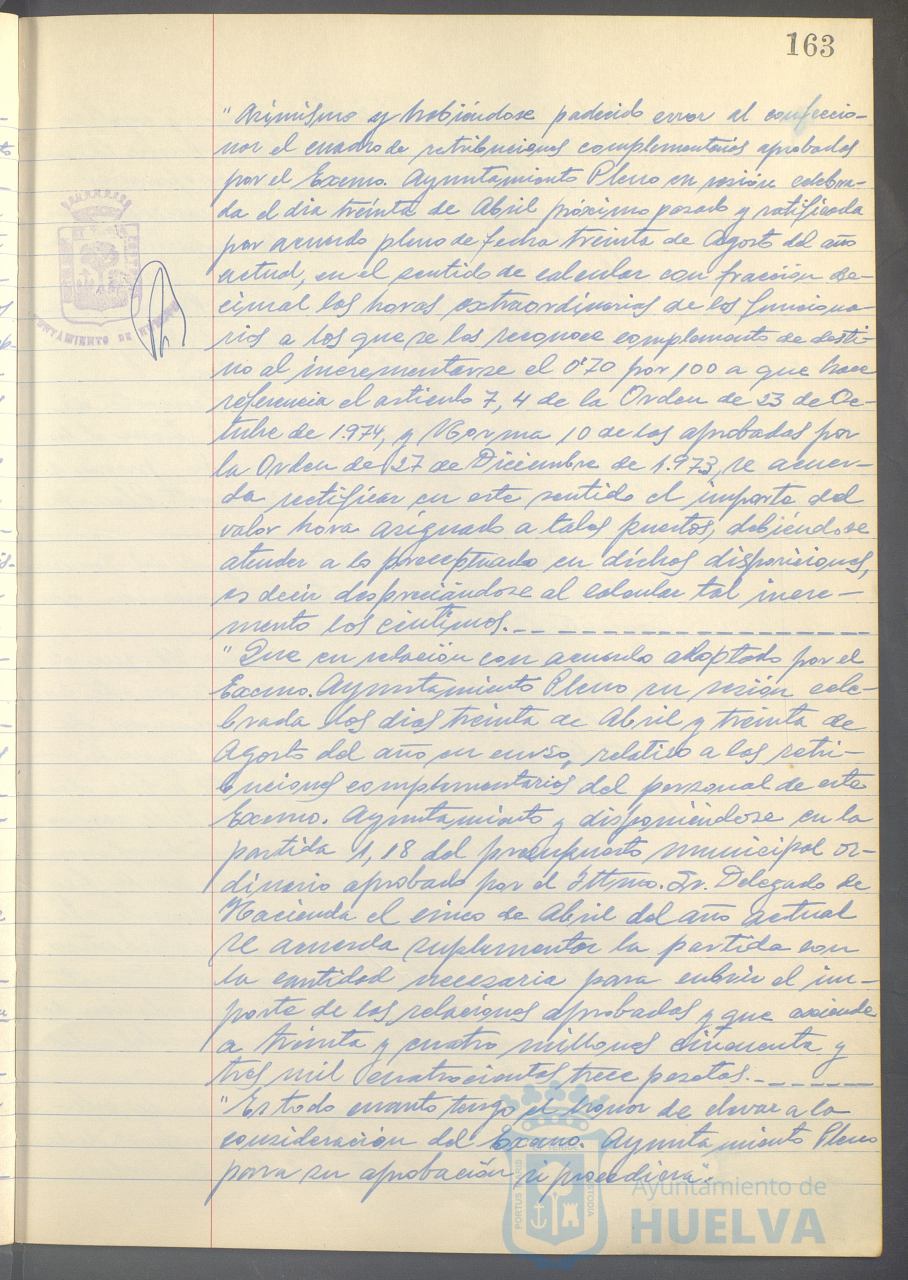 163
"Asimismo y habiéndose padecido error al confeccio-
nar el cuadro de retribuciones complementarias aprobadas
por el Excmo. Ayuntamiento Pleno en sesión celebra-
da el dia treinta de Abril próximo pasado y ratificada
por acuerdo pleno de fecha treinta de Agosto del año
actual, en el sentido de calcular con fracción de-
cimal las horas extraordinarias de los funciona-
rios a los que se les reconoce complemento de desti-
no al incrementarse el 0'70 por 100 a que hace
referencia el artículo 7, 4 de la Orden de 23 de Oc-
tubre de 1.974, y Norma 10 de las aprobadas por
la Orden de 27 de Diciembre de 1.973, se acuer-
da rectificar en este sentido el importe del
valor hora asignado a tales puestos, debiéndose
atender a lo preceptuado en dichas disposiciones,
es decir despreciándose al calcular tal incre-
mento los céntimos.
"Que en relación con acuerdo adoptado por el
Excmo. Ayuntamiento Pleno en sesión cele-
brada los dias treinta de Abril y treinta de
Agosto del año en curso, relativo a las retri-
buciones complementarias del personal de este
Excmo. Ayuntamiento y disponiéndose en la
partida 1,18 del presupuesto municipal or-
dinario aprobado por el Iltmo. Sr. Delegado de
Hacienda el cinco de Abril del año actual
se acuerda suplementar la partida con
la cantidad necesaria para cubrir el im-
porte de las relaciones aprobadas y que asciende
a treinta y cuatro millones cincuenta y
tres mil cuatrocientas trece pesetas.
"Es todo cuanto tengo el honor de elevar a la
consideración del Excmo. Ayuntamiento Pleno
para su aprobación si procediera".
AYUNTAMIENTO DE HUELVA
PORTUS MARIS ET TERRAE CUSTODIA
Ayuntamiento de
HUELVA